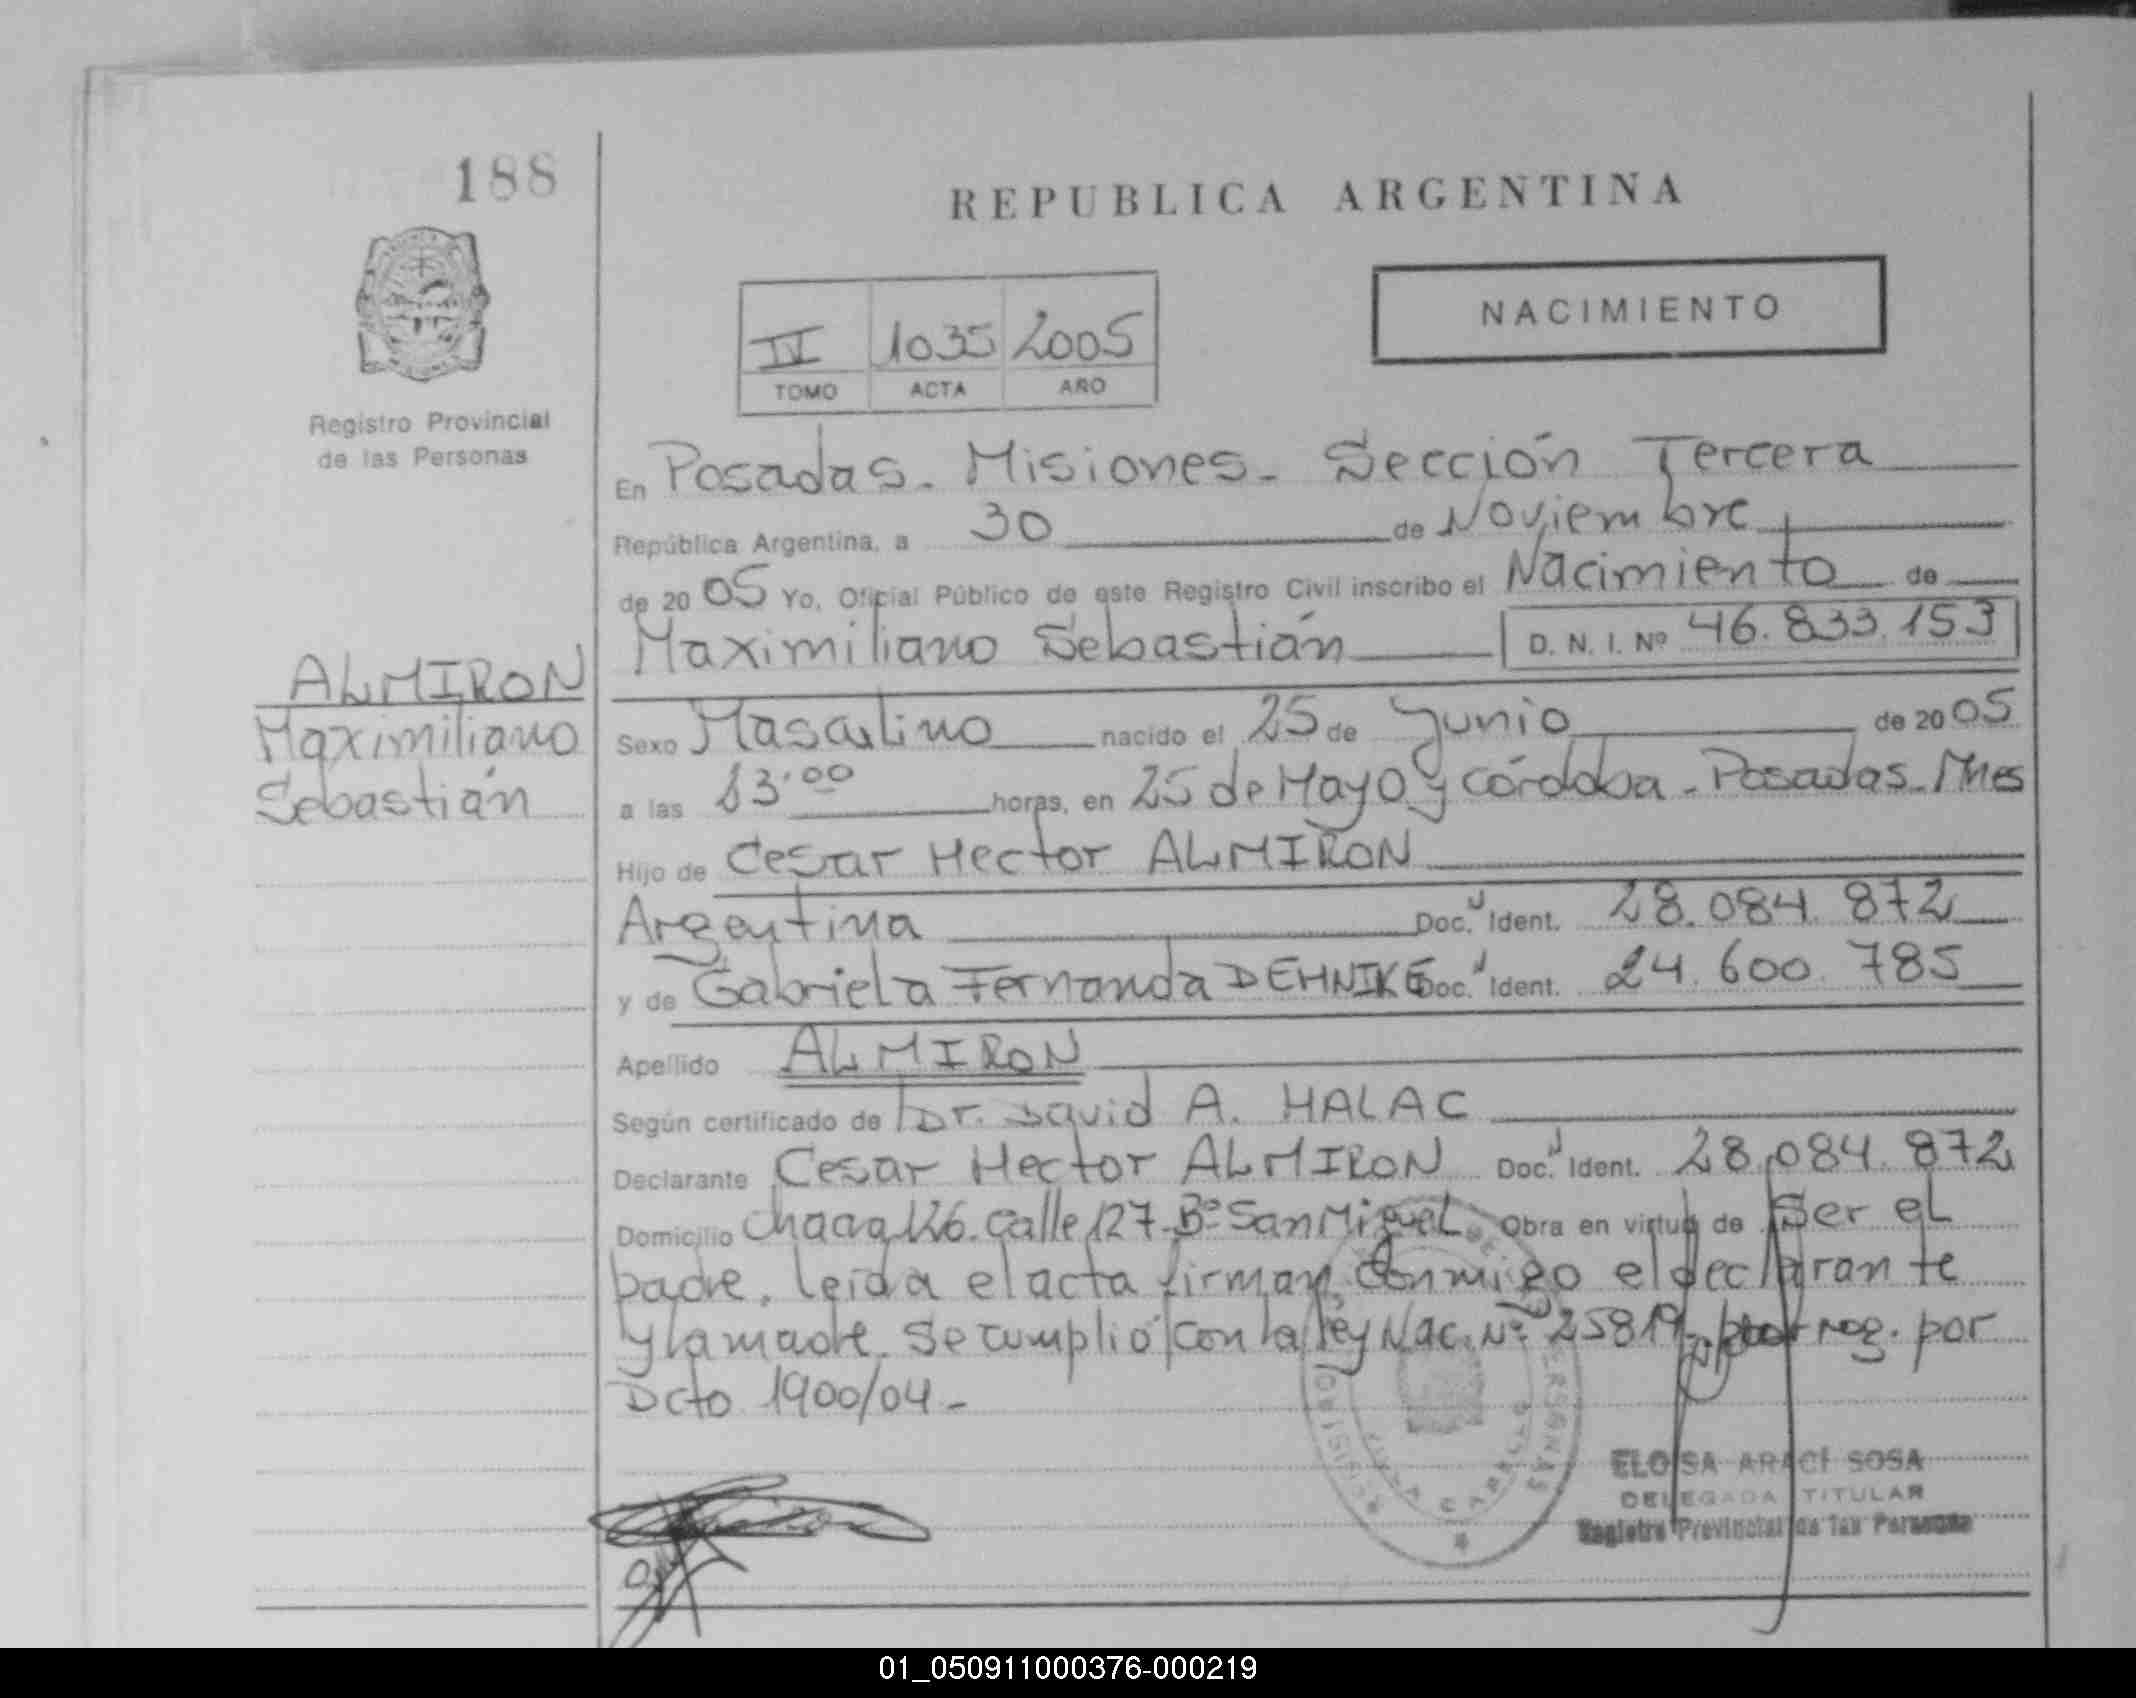 188
REPUBLICA ARGENTINA
NACIMIENTO
IV 1035 2005
TOMO ACTA AÑO
Registro Provincial
de las Personas
En Posadas - Misiones - Sección Tercera
República Argentina, a 30 de Noviembre
de 20 05 Yo, Oficial Público de este Registro Civil inscribo el Nacimiento de
Maximiliano Sebastián D. N. I. Nº 46.833.153
ALMIRON
Maximiliano
Sebastián
Sexo Masculino nacido el 25 de Junio de 20 05
a las 13:00 horas, en 25 de Mayo y Córdoba - Posadas - Mnes
Hijo de Cesar Hector ALMIRON
Argentina Doc. Ident. 28.084.872
y de Gabriela Fernanda DEHNIKE Doc. Ident. 24.600.785
Apellido ALMIRON
Según certificado de Dr. David A. HALAC
Declarante Cesar Hector ALMIRON Doc. Ident. 28.084.872
Domicilio Chacra 126. Calle 127. Bº San Miguel Obra en virtud de Ser el
padre. Leída el acta firman conmigo el declarante
y la madre. Se cumplió con la ley Nac. Nº 25819 prorrog. por
Dcto 1900/04 -
ELOISA ARACI SOSA
DELEGADA TITULAR
Registro Provincial de las Personas
01_050911000376-000219